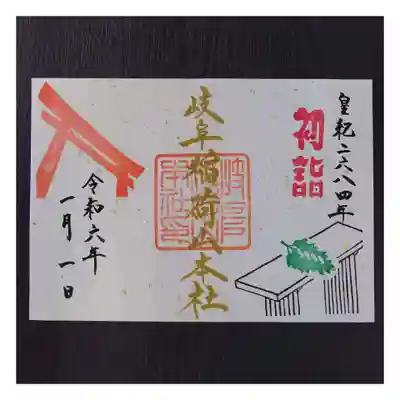 皇紀二六八四年
初詣
岐阜稲荷山本社
令和六年
一月一日